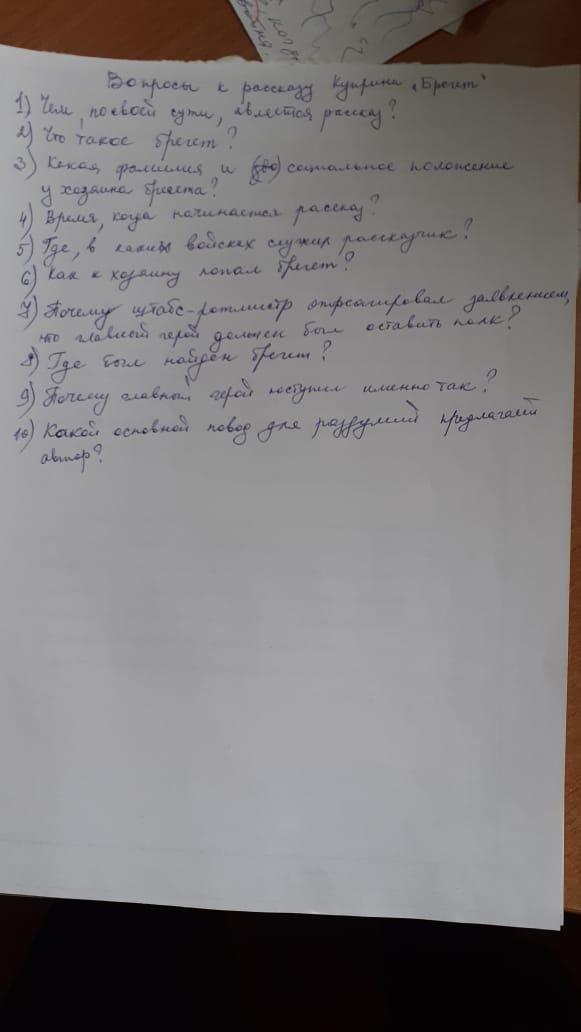 когда
Вопросы к рассказу Куприна „Брегет"
1) Чем, по своей сути, является рассказ?
2) Что такое брегет?
3) Какая фамилия и социальное положение
у хозяина брегета?
4) Время, когда начинается рассказ?
5) Где, в каких войсках служил рассказчик?
6) Как к хозяину попал брегет?
7) Почему штабс-ротмистр отреагировал заявлением,
что главный герой должен был оставить полк?
8) Где был найден брегет?
9) Почему главный герой поступил именно так?
10) Какой основной повод для раздумий предлагает
автор?